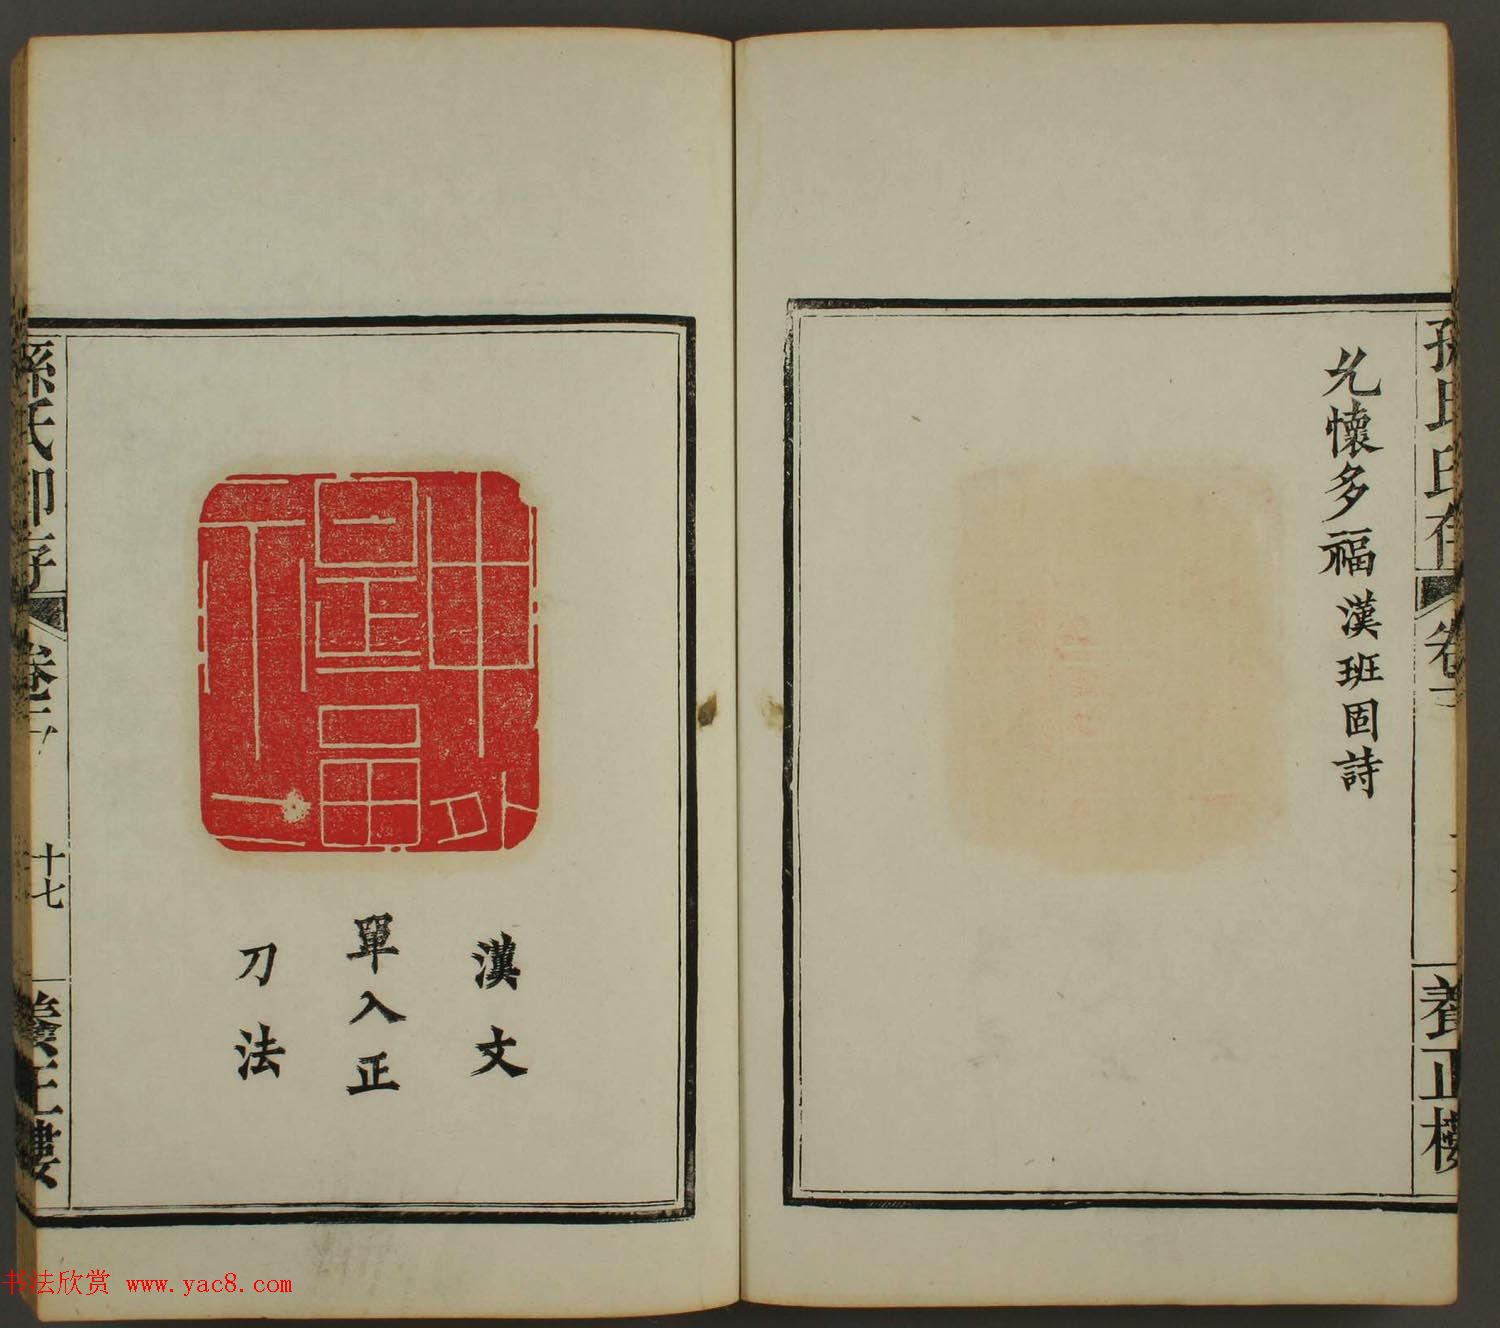 孫氏印存
卷
養正樓
允懷多福漢班固詩
漢文
單入正
刀法
孫氏印存
卷
十七
養正樓
书法欣赏 www.yac8.com